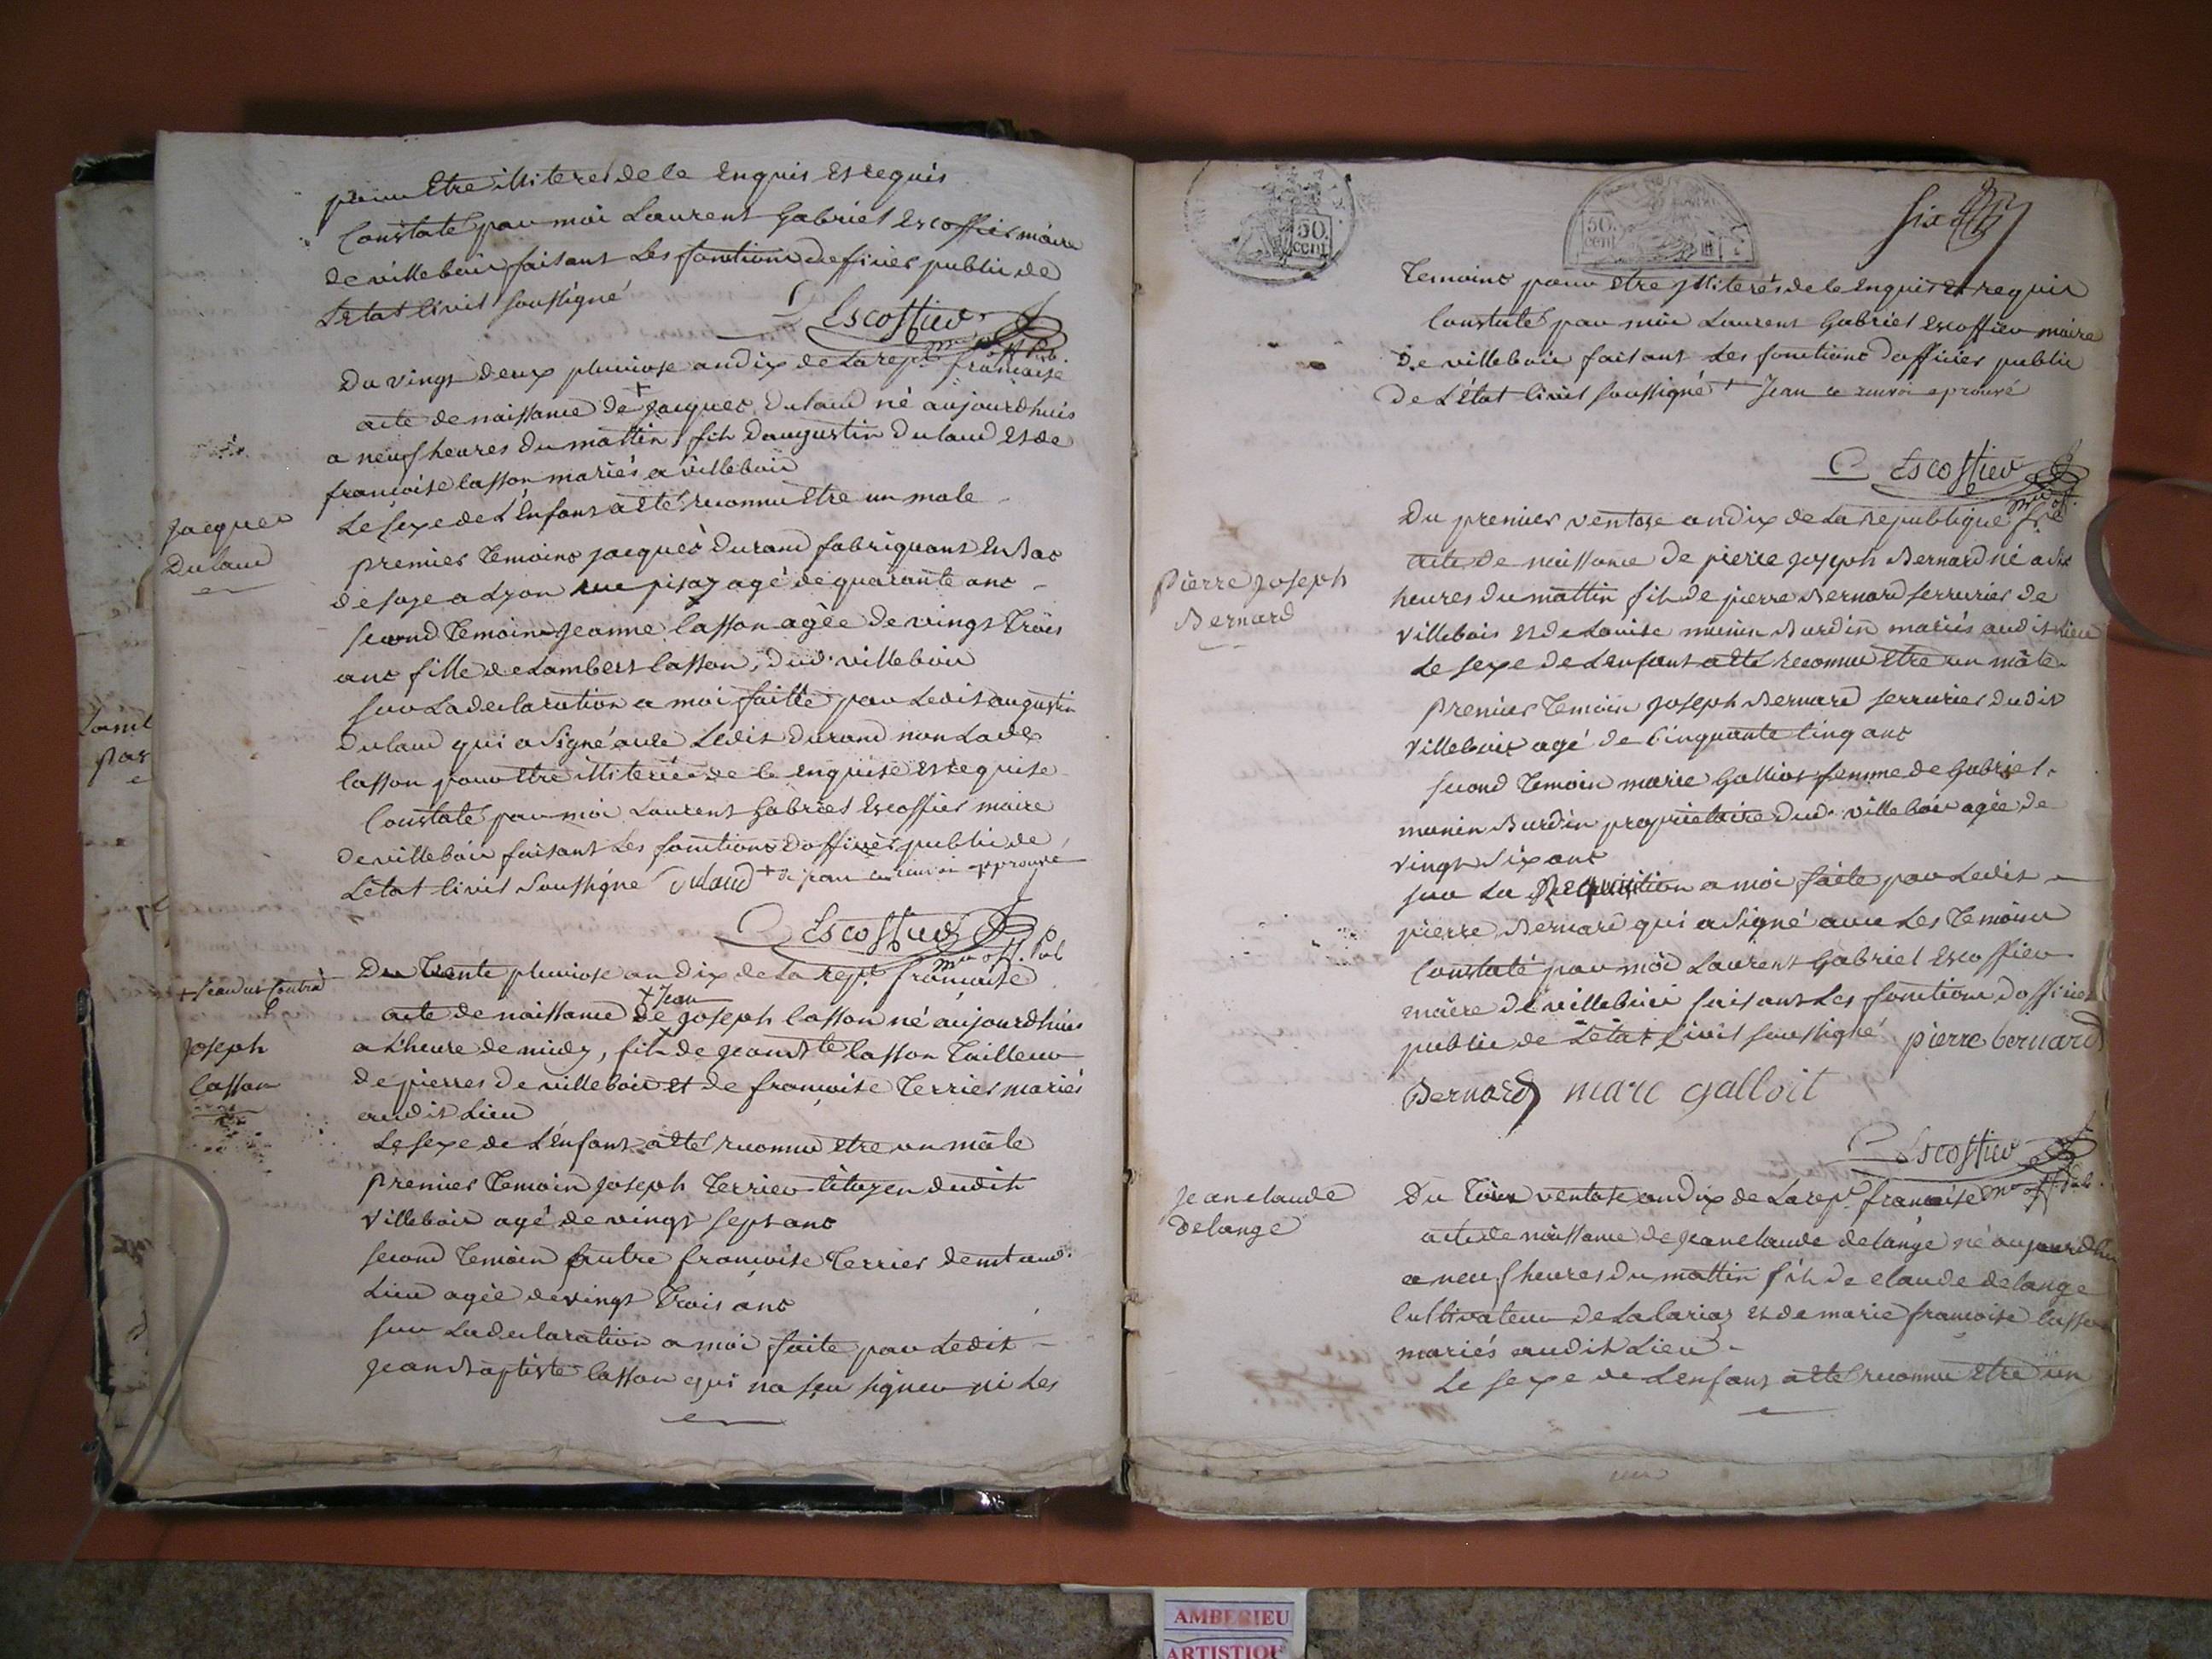 pour Etre illiteres de ce Enquis Et requis
Constaté par moi Laurent Gabriel Escoffier maire
de villebois faisant Les fonctions dofficier public de
Letat Civil soussigné
Escoffier
mre off. Pub.
Du vingt deux pluviose an dix de La repe. francaise
acte de naissance de + jacques dulaud né aujourdhuis
a neuf heures du mattin, fils daugustin dulaud Et de
francoise lasson mariés a villebois
Le sexe de L'Enfant a Eté reconnu Etre un male
jacques
Dulaud
premier Temoins jacques Durand fabriquant En Bas
de soye a Lyon rue pisay agé de quarante ans
second Temoin jeanne lasson agée de vingt Trois
ans fille de Lambert lasson, dud. villebois
sur La declaration a moi faitte par Ledit augustin
dulaud qui a signé avec Ledit durand non Lade
lasson pour Etre illiterée de ce Enquise Et requise
Constaté par moi Laurent Gabriel Escoffier maire
de villebois faisant Les fonctions dofficier public de
L'état Civil soussigné Dulaud + renvoi approuvé
Escoffier
mre off. Pub
Du Trente pluviose an dix de La repe. francaise
+ Jean
acte de naissance de joseph lasson né aujourdhuis
a L'heure de midy, fils de jean Bte lasson Tailleur
joseph
lasson
de pierres de villebois et de francoise Terrier mariés
audit Lieu
Le sexe de L'Enfant a Eté reconnu Etre un mâle
premier Temoin joseph Terrier Citoyen dudit
villebois agé de vingt sept ans
second Temoin autre francoise Terrier demt aud.
Lieu agée de vingt Trois ans
sur La declaration a moi faite par Ledit
jean Baptiste lasson qui na seu signer ni Les
50.
cent
50.
cent
six
Temoins pour Etre illiterés de ce Enquis Et requis
Constaté par moi Laurent Gabriel Escoffier maire
De villebois faisant Les fonctions dofficier public
De L'état Civil soussigné + Jean ce renvoi aprouvé
Escoffier
mre off.
Du premier ventose an dix de La Republique fse
acte de naissance de pierre joseph Bernard né a dix
Pierre joseph
Bernard
heures du mattin fils de pierre Bernard serrurier de
villebois Et de Louise munin Burdin mariés audit Lieu
Le sexe de L'enfant a Eté reconnu Etre un mâle
premier Temoin joseph Bernard serrurier dudit
villebois agé de Cinquante Cinq ans
second Temoin marie Galliot femme de Gabriel
munin Burdin proprietaire dud. villebois agée de
vingt six ans
sur La Requisition a moi faite par Ledit
pierre Bernard qui a signé avec Les Temoins
Constaté par moi Laurent Gabriel Escoffier
maire de villebois faisant Les fonctions dofficier
public de L'état Civil soussigné pierre bernard
Bernard marie galloit
Escoffier
mre off. Pub.
Jean claude
delange
Du Trois ventose an dix de La repe. francaise
acte de naissance de jean claude delange né aujourdhui
a neuf heures du mattin fils de claude delange
Cultivateur de Lalariaz et de marie francoise lasson
mariés audit Lieu
Le sexe de L'enfant a Eté reconnu Etre un
AMBERIEU
ARTISTIQU